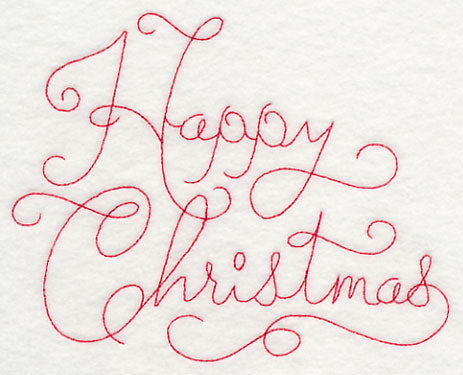 Happy
Christmas